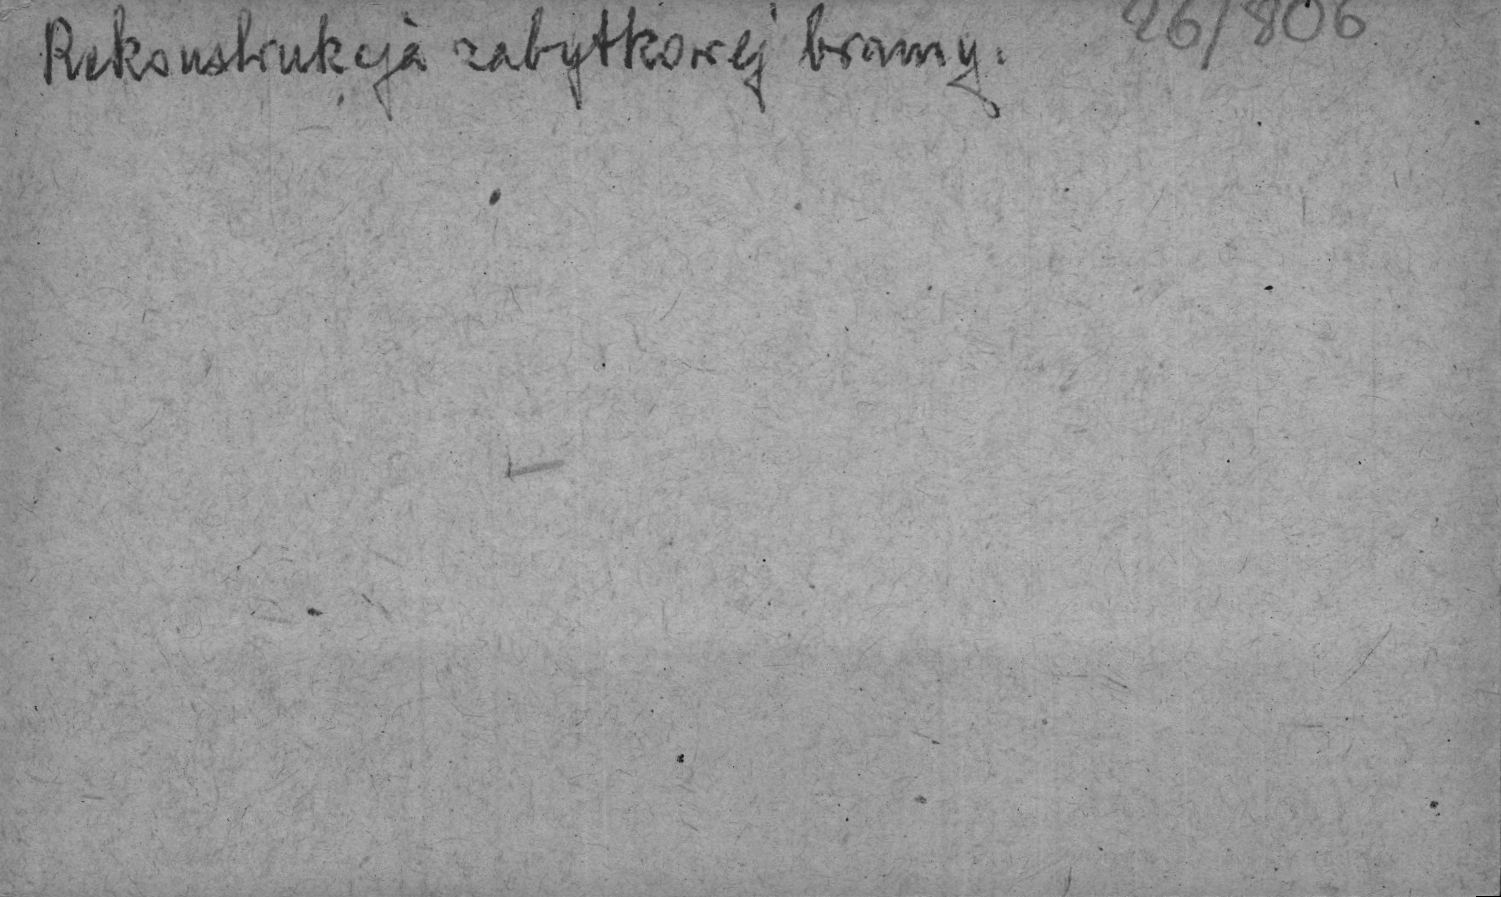 Rekonstrukcja zabytkowej bramy.
26/806